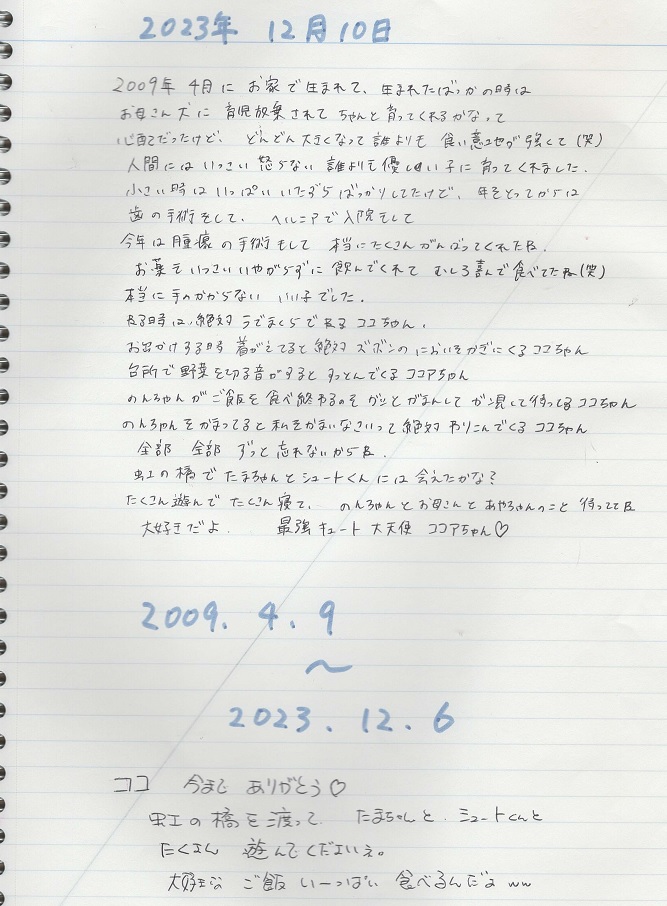 2023年 12月10日
2009年 4月に お家で生まれて、生まれたばっかの時は
お母さん犬に 育児放棄されて ちゃんと育ってくれるかなって
心配だったけど、 どんどん大きくなって誰よりも 食い意地が強くて(笑)
人間にはいっさい怒らない 誰よりも優しい子に育ってくれました.
小さい時は いっぱい いたずらばっかりしてたけど、年をとってからは
歯の手術をして、 ヘルニアで入院をして
今年は腫瘍の手術もして 本当にたくさんがんばってくれたね.
お薬もいっさいいやがらずに 飲んでくれて むしろ喜んで食べてたね(笑)
本当に手のかからない いい子でした.
ねる時は、絶対うでまくらでねるココちゃん.
お出かけする時 着がえてると絶対ズボンのにおいをかぎにくるココちゃん
台所で野菜を切る音がするとすっとんでくるココアちゃん
のんちゃんがご飯を食べ終わるのをガッとがまんしてガン見して待ってるココちゃん
のんちゃんをかまってると私をかまいなさいって絶対わりこんでくるココちゃん
全部 全部 ずっと忘れないからね.
虹の橋でたまちゃんとシュートくんには会えたかな?
たくさん遊んでたくさん寝て、 のんちゃんとお母さんとあやちゃんのこと待っててね
大好きだよ. 最強キュート大天使 ココアちゃん♡
2009. 4. 9
〜
2023. 12. 6
ココ 今まで ありがとう♡
虹の橋を渡って たまちゃんと、シュートくんと
たくさん 遊んでくださいえ。
大好きな ご飯 いーっぱい 食べるんだよww